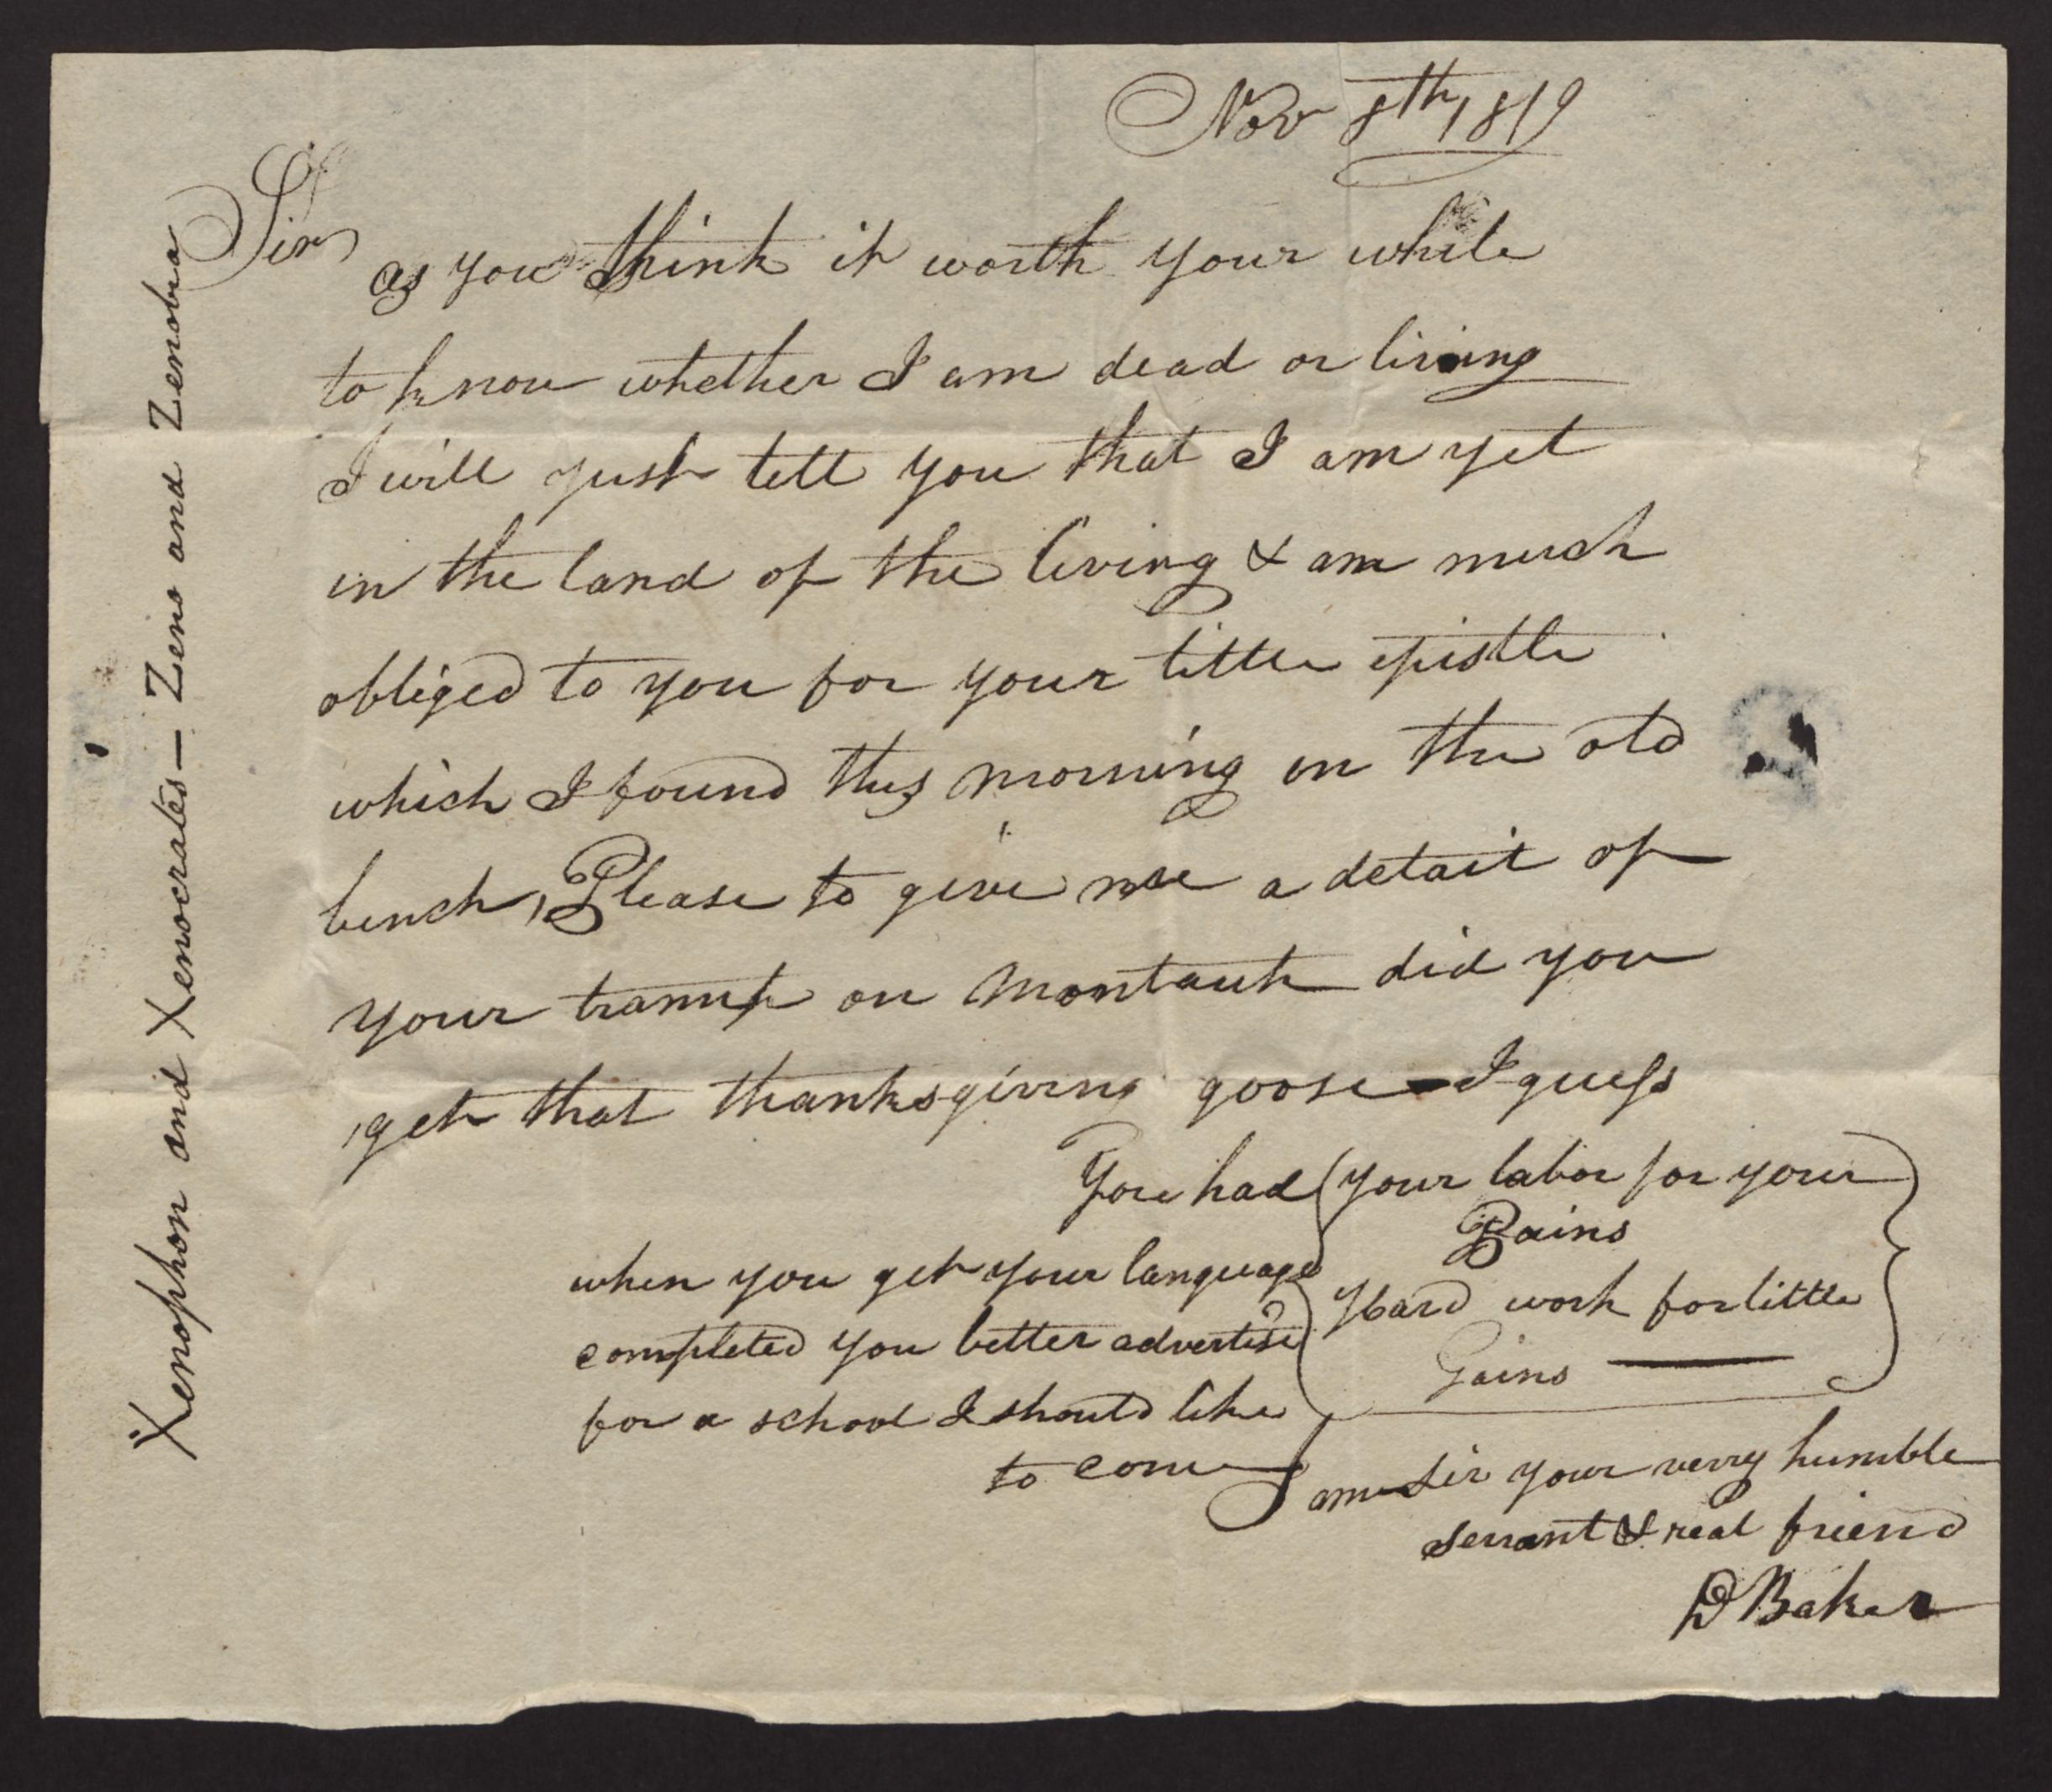 Nov 8th, 1819
Sir
as you think it worth your while
to know whether I am dead or living
I will just tell you that I am yet
in the land of the living & am much
obliged to you for your little epistle
which I found this morning on the old
bench, Please to give me a detail of
your tramp on Montauk did you
get that thanksgiving goose — I guess
You had (your labor for your
Pains
Hard work for little
Gains —
when you get your language
completed you better advertise
for a school I should like
to come
I am Sir your verry humble
servant & real friend
D Baker
Xenophon and Xenocrates — Zeno and Zenobia